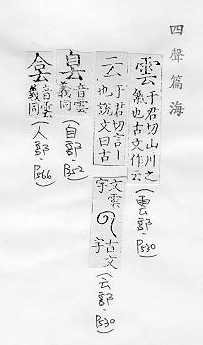 四聲篇海
雲
于君切山川之
氣也古文作云
(雲部.P530)
云
于君切言㇐
也說文曰古
文雲
字
古文
字
(云部.P530)
㒷
音雲
義同
(自部.P52)
音雲
義同
(人部.P566)